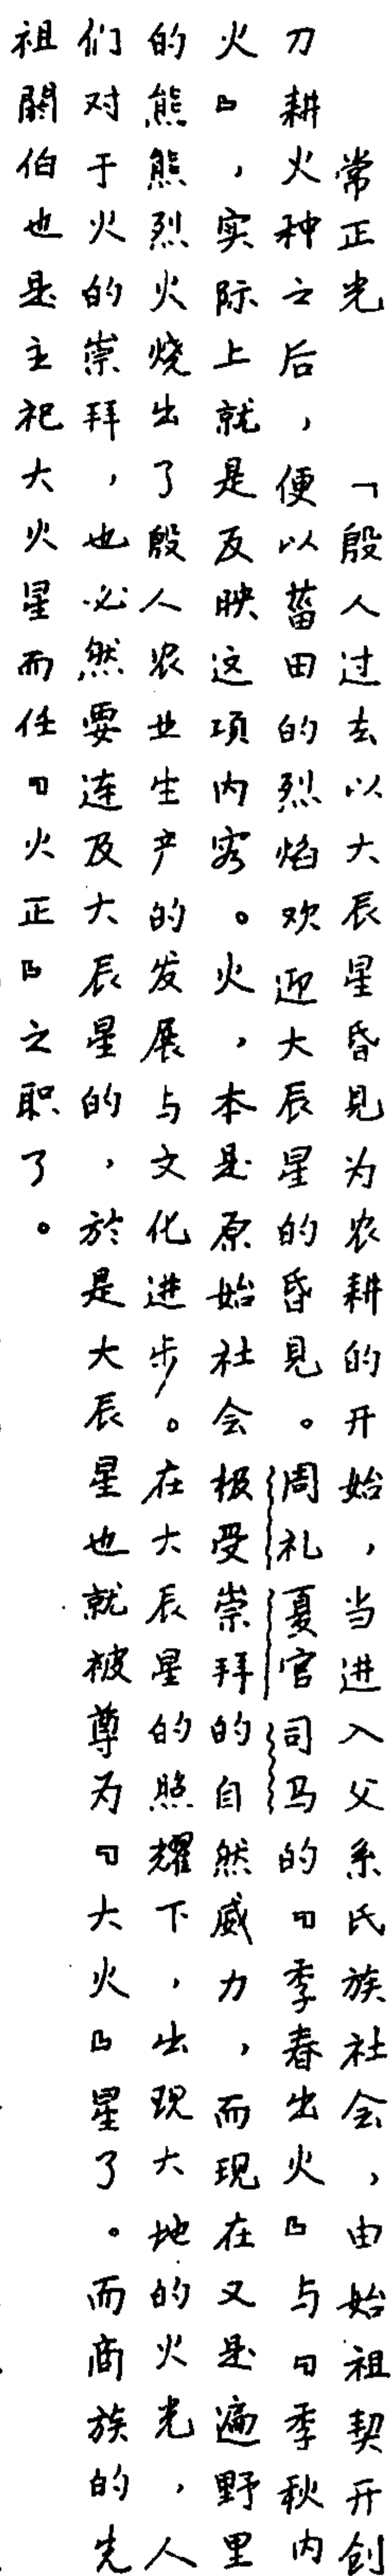 常正光　「殷人过去以大辰星昏见为农耕的开始，当进入父系氏族社会，由始祖契开创
刀耕火种之后，便以菑田的烈焰欢迎大辰星的昏见。周礼夏官司马的『季春出火』与『季秋内
火』，实际上就是反映这项内容。火，本是原始社会极受崇拜的自然威力，而现在又是遍野里
的熊熊烈火烧出了殷人农业生产的发展与文化进步。在大辰星的照耀下，出现大地的火光，人
们对于火的崇拜，也必然要连及大辰星的，於是大辰星也就被尊为『大火』星了。而商族的先
祖阏伯也是主祀大火星而任『火正』之职了。